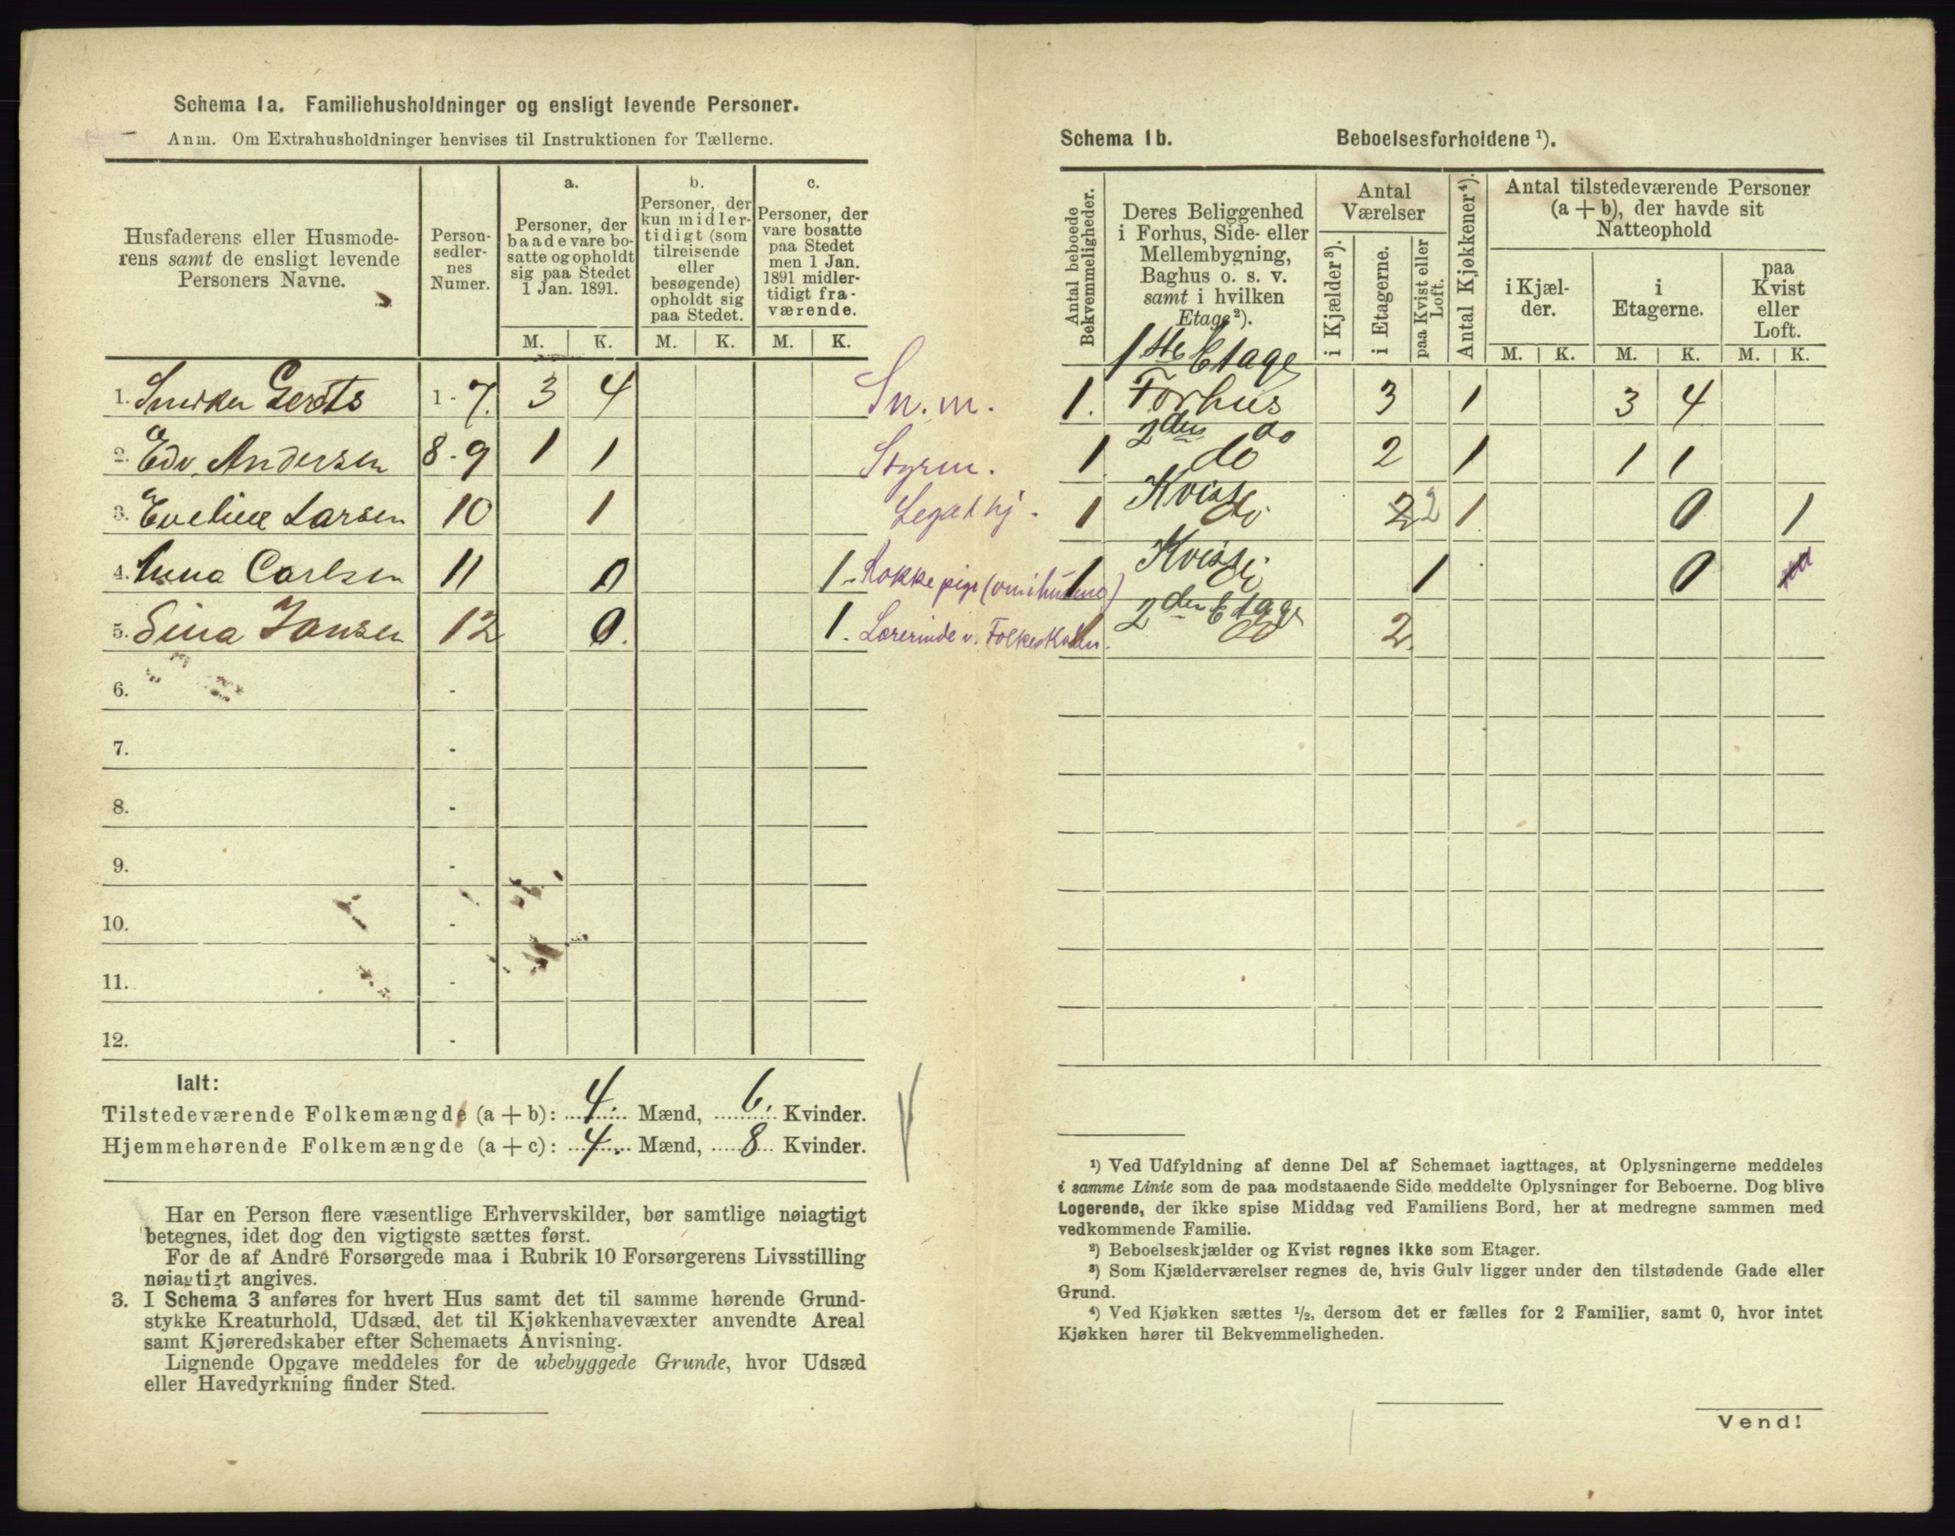 Schema 1a. Familiehusholdninger og ensligt levende Personer.
Anm. Om Extrahusholdninger henvises til Instruktionen for Tællerne.
Husfaderens eller Husmode-
rens samt de ensligt levende
Personers Navne.
Person-
sedler-
nes
Numer.
a.
Personer, der
baade vare bo-
satte og opholdt
sig paa Stedet
1 Jan. 1891.
b.
Personer, der
kun midler-
tidigt (som
tilreisende
eller
besøgende)
opholdt sig
paa Stedet.
c.
Personer, der
vare bosatte
paa Stedet
men 1 Jan.
1891 midler-
tidigt fra-
værende.
M. K. M. K. M. K.
1. Snedker Gerdts 1 - 7. 3 4 Sn. m.
2. Edv. Andersen 8 - 9 1 1 Styrm.
3. Eveline Larsen 10 1 Legathj.
4. Anna Carlsen 11 0 1. Kokkepige
5. Sina Jansen 12 0. 1. Lærerinde v. Folkeskolen.
6. -
7. -
8. -
9. -
10. -
11. -
12. -
Ialt:
Tilstedeværende Folkemængde (a + b): 4. Mænd, 6. Kvinder.
Hjemmehørende Folkemængde (a + c): 4. Mænd, 8 Kvinder.
Har en Person flere væsentlige Erhvervskilder, bør samtlige nøiagtigt
betegnes, idet dog den vigtigste sættes først.
For de af Andre Forsørgede maa i Rubrik 10 Forsørgerens Livsstilling
nøiagtigt angives.
3. I Schema 3 anføres for hvert Hus samt det til samme hørende Grund-
stykke Kreaturhold, Udsæd, det til Kjøkkenhavevæxter anvendte Areal
samt Kjøreredskaber efter Schemaets Anvisning.
Lignende Opgave meddeles for de ubebyggede Grunde, hvor Udsæd
eller Havedyrkning finder Sted.
Schema 1b. Beboelsesforholdene ¹).
Antal beboede
Bekvemmeligheder.
Deres Beliggenhed
i Forhus, Side- eller
Mellembygning,
Baghus o. s. v.
samt i hvilken
Etage²).
Antal
Værelser
i Kjælder³).
i Etagerne.
paa Kvist eller
Loft.
Antal Kjøkkener⁴).
Antal tilstedeværende Personer
(a + b), der havde sit
Natteophold
i Kjæl-
der.
i
Etagerne.
paa
Kvist
eller
Loft.
M. K. M. K. M. K.
1ste Etage
1. Forhus 3 1 3 4
2den do
1 do 2 1 1 1
Kvist
1 do 2 2 1 0 1
Kvist
1 do 1 0
2den Etage
1 do 2
¹) Ved Udfyldning af denne Del af Schemaet iagttages, at Oplysningerne meddeles
i samme Linie som de paa modstaaende Side meddelte Oplysninger for Beboerne. Dog blive
Logerende, der ikke spise Middag ved Familiens Bord, her at medregne sammen med
vedkommende Familie.
²) Beboelseskjælder og Kvist regnes ikke som Etager.
³) Som Kjælderværelser regnes de, hvis Gulv ligger under den tilstødende Gade eller
Grund.
⁴) Ved Kjøkken sættes ½, dersom det er fælles for 2 Familier, samt 0, hvor intet
Kjøkken hører til Bekvemmeligheden.
Vend!